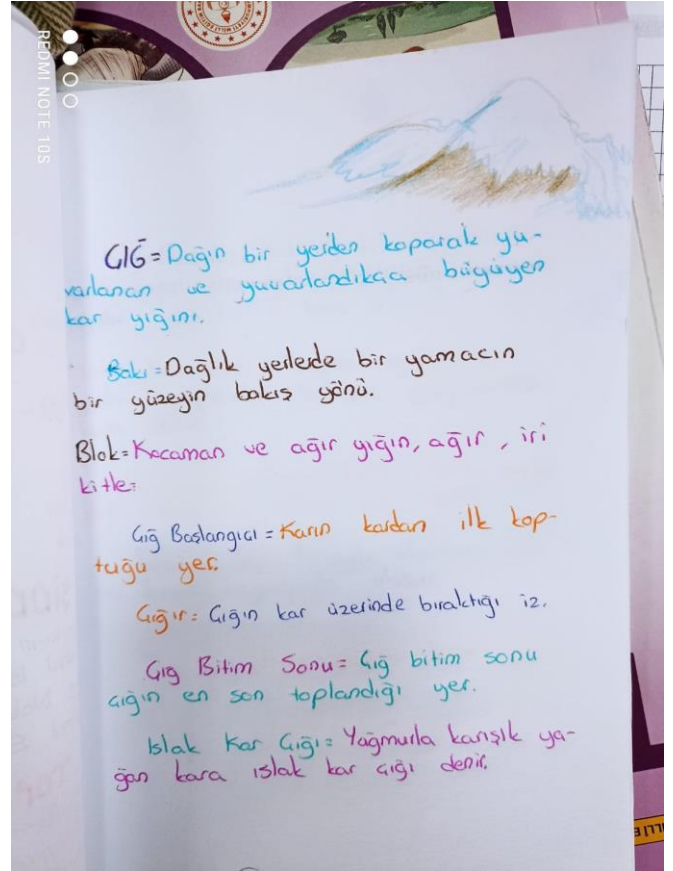 REDMI NOTE 10S
ÇIĞ = Dağın bir yerden koparak yu-
varlanan ve yuvarlandıkça büyüyen
kar yığını.
Bakı = Dağlık yerlerde bir yamacın
bir yüzeyin bakış yönü.
Blok = Kocaman ve ağır yığın, ağır, iri
kitle.
Çığ Başlangıcı = Karın kardan ilk kop-
tuğu yer.
Çığır = Çığın kar üzerinde bıraktığı iz.
Çığ Bitim Sonu = Çığ bitim sonu
çığın en son toplandığı yer.
Islak Kar Çığı = Yağmurla karışık ya-
ğan kara ıslak kar çığı denir.